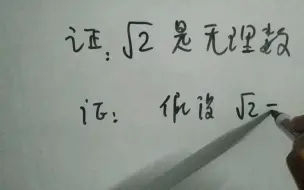 证:√2 是无理数
证: 假设 √2 =